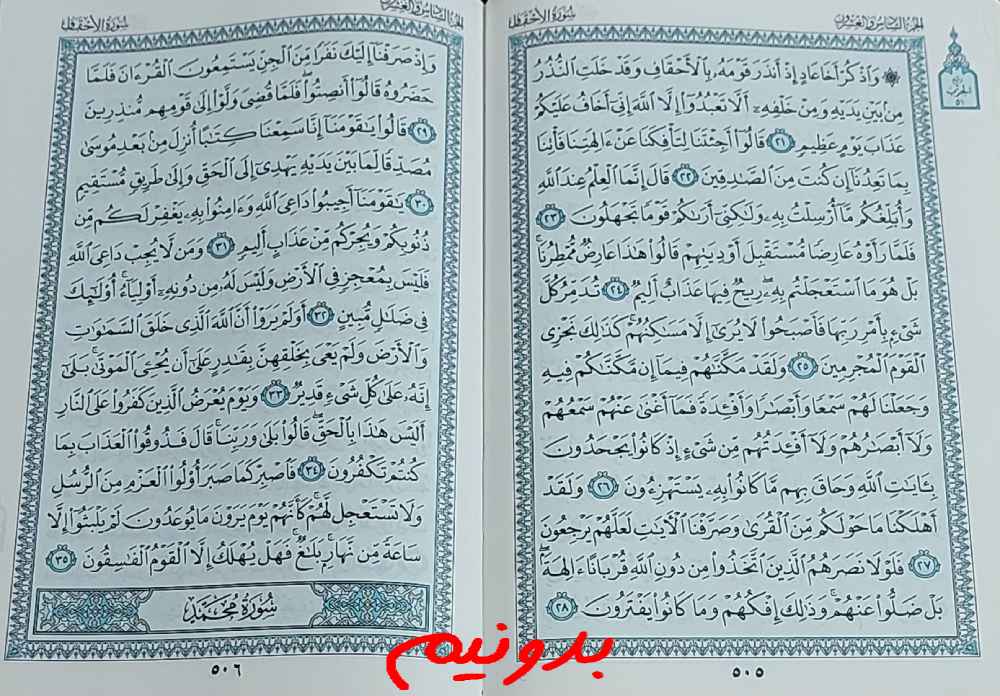 الجزء السادس والعشرون
سورة الأحقاف
۞ وَٱذْكُرْ أَخَا عَادٍ إِذْ أَنذَرَ قَوْمَهُۥ بِٱلْأَحْقَافِ وَقَدْ خَلَتِ ٱلنُّذُرُ
مِنۢ بَيْنِ يَدَيْهِ وَمِنْ خَلْفِهِۦٓ أَلَّا تَعْبُدُوٓا۟ إِلَّا ٱللَّهَ إِنِّىٓ أَخَافُ عَلَيْكُمْ
عَذَابَ يَوْمٍ عَظِيمٍ ٢١ قَالُوٓا۟ أَجِئْتَنَا لِتَأْفِكَنَا عَنْ ءَالِهَتِنَا فَأْتِنَا
بِمَا تَعِدُنَآ إِن كُنتَ مِنَ ٱلصَّٰدِقِينَ ٢٢ قَالَ إِنَّمَا ٱلْعِلْمُ عِندَ ٱللَّهِ
وَأُبَلِّغُكُم مَّآ أُرْسِلْتُ بِهِۦ وَلَٰكِنِّىٓ أَرَىٰكُمْ قَوْمًا تَجْهَلُونَ ٢٣
فَلَمَّا رَأَوْهُ عَارِضًا مُّسْتَقْبِلَ أَوْدِيَتِهِمْ قَالُوا۟ هَٰذَا عَارِضٌ مُّمْطِرُنَا ۚ
بَلْ هُوَ مَا ٱسْتَعْجَلْتُم بِهِۦ ۖ رِيحٌ فِيهَا عَذَابٌ أَلِيمٌ ٢٤ تُدَمِّرُ كُلَّ
شَىْءٍۭ بِأَمْرِ رَبِّهَا فَأَصْبَحُوا۟ لَا يُرَىٰٓ إِلَّا مَسَٰكِنُهُمْ ۚ كَذَٰلِكَ نَجْزِى
ٱلْقَوْمَ ٱلْمُجْرِمِينَ ٢٥ وَلَقَدْ مَكَّنَّٰهُمْ فِيمَآ إِن مَّكَّنَّٰكُمْ فِيهِ
وَجَعَلْنَا لَهُمْ سَمْعًا وَأَبْصَٰرًا وَأَفْـِٔدَةً فَمَآ أَغْنَىٰ عَنْهُمْ سَمْعُهُمْ
وَلَآ أَبْصَٰرُهُمْ وَلَآ أَفْـِٔدَتُهُم مِّن شَىْءٍ إِذْ كَانُوا۟ يَجْحَدُونَ
بِـَٔايَٰتِ ٱللَّهِ وَحَاقَ بِهِم مَّا كَانُوا۟ بِهِۦ يَسْتَهْزِءُونَ ٢٦ وَلَقَدْ
أَهْلَكْنَا مَا حَوْلَكُم مِّنَ ٱلْقُرَىٰ وَصَرَّفْنَا ٱلْـَٔايَٰتِ لَعَلَّهُمْ يَرْجِعُونَ
٢٧ فَلَوْلَا نَصَرَهُمُ ٱلَّذِينَ ٱتَّخَذُوا۟ مِن دُونِ ٱللَّهِ قُرْبَانًا ءَالِهَةًۢ ۖ
بَلْ ضَلُّوا۟ عَنْهُمْ ۚ وَذَٰلِكَ إِفْكُهُمْ وَمَا كَانُوا۟ يَفْتَرُونَ ٢٨
٥٠٥
الجزء السادس والعشرون
سورة الأحقاف
وَإِذْ صَرَفْنَآ إِلَيْكَ نَفَرًا مِّنَ ٱلْجِنِّ يَسْتَمِعُونَ ٱلْقُرْءَانَ فَلَمَّا
حَضَرُوهُ قَالُوٓا۟ أَنصِتُوا۟ ۖ فَلَمَّا قُضِىَ وَلَّوْا۟ إِلَىٰ قَوْمِهِم مُّنذِرِينَ
٢٩ قَالُوا۟ يَٰقَوْمَنَآ إِنَّا سَمِعْنَا كِتَٰبًا أُنزِلَ مِنۢ بَعْدِ مُوسَىٰ
مُصَدِّقًا لِّمَا بَيْنَ يَدَيْهِ يَهْدِىٓ إِلَى ٱلْحَقِّ وَإِلَىٰ طَرِيقٍ مُّسْتَقِيمٍ
٣٠ يَٰقَوْمَنَآ أَجِيبُوا۟ دَاعِىَ ٱللَّهِ وَءَامِنُوا۟ بِهِۦ يَغْفِرْ لَكُم مِّن
ذُنُوبِكُمْ وَيُجِرْكُم مِّنْ عَذَابٍ أَلِيمٍ ٣١ وَمَن لَّا يُجِبْ دَاعِىَ ٱللَّهِ
فَلَيْسَ بِمُعْجِزٍ فِى ٱلْأَرْضِ وَلَيْسَ لَهُۥ مِن دُونِهِۦٓ أَوْلِيَآءُ ۚ أُو۟لَٰٓئِكَ
فِى ضَلَٰلٍ مُّبِينٍ ٣٢ أَوَلَمْ يَرَوْا۟ أَنَّ ٱللَّهَ ٱلَّذِى خَلَقَ ٱلسَّمَٰوَٰتِ
وَٱلْأَرْضَ وَلَمْ يَعْىَ بِخَلْقِهِنَّ بِقَٰدِرٍ عَلَىٰٓ أَن يُحْـِۧىَ ٱلْمَوْتَىٰ ۚ بَلَىٰٓ
إِنَّهُۥ عَلَىٰ كُلِّ شَىْءٍ قَدِيرٌ ٣٣ وَيَوْمَ يُعْرَضُ ٱلَّذِينَ كَفَرُوا۟ عَلَى ٱلنَّارِ
أَلَيْسَ هَٰذَا بِٱلْحَقِّ ۖ قَالُوا۟ بَلَىٰ وَرَبِّنَا ۚ قَالَ فَذُوقُوا۟ ٱلْعَذَابَ بِمَا
كُنتُمْ تَكْفُرُونَ ٣٤ فَٱصْبِرْ كَمَا صَبَرَ أُو۟لُوا۟ ٱلْعَزْمِ مِنَ ٱلرُّسُلِ
وَلَا تَسْتَعْجِل لَّهُمْ ۚ كَأَنَّهُمْ يَوْمَ يَرَوْنَ مَا يُوعَدُونَ لَمْ يَلْبَثُوٓا۟ إِلَّا
سَاعَةً مِّن نَّهَارٍۭ ۚ بَلَٰغٌ ۚ فَهَلْ يُهْلَكُ إِلَّا ٱلْقَوْمُ ٱلْفَٰسِقُونَ ٣٥
سُورَةُ مُحَمَّدٍ
٥٠٦
بدونیم